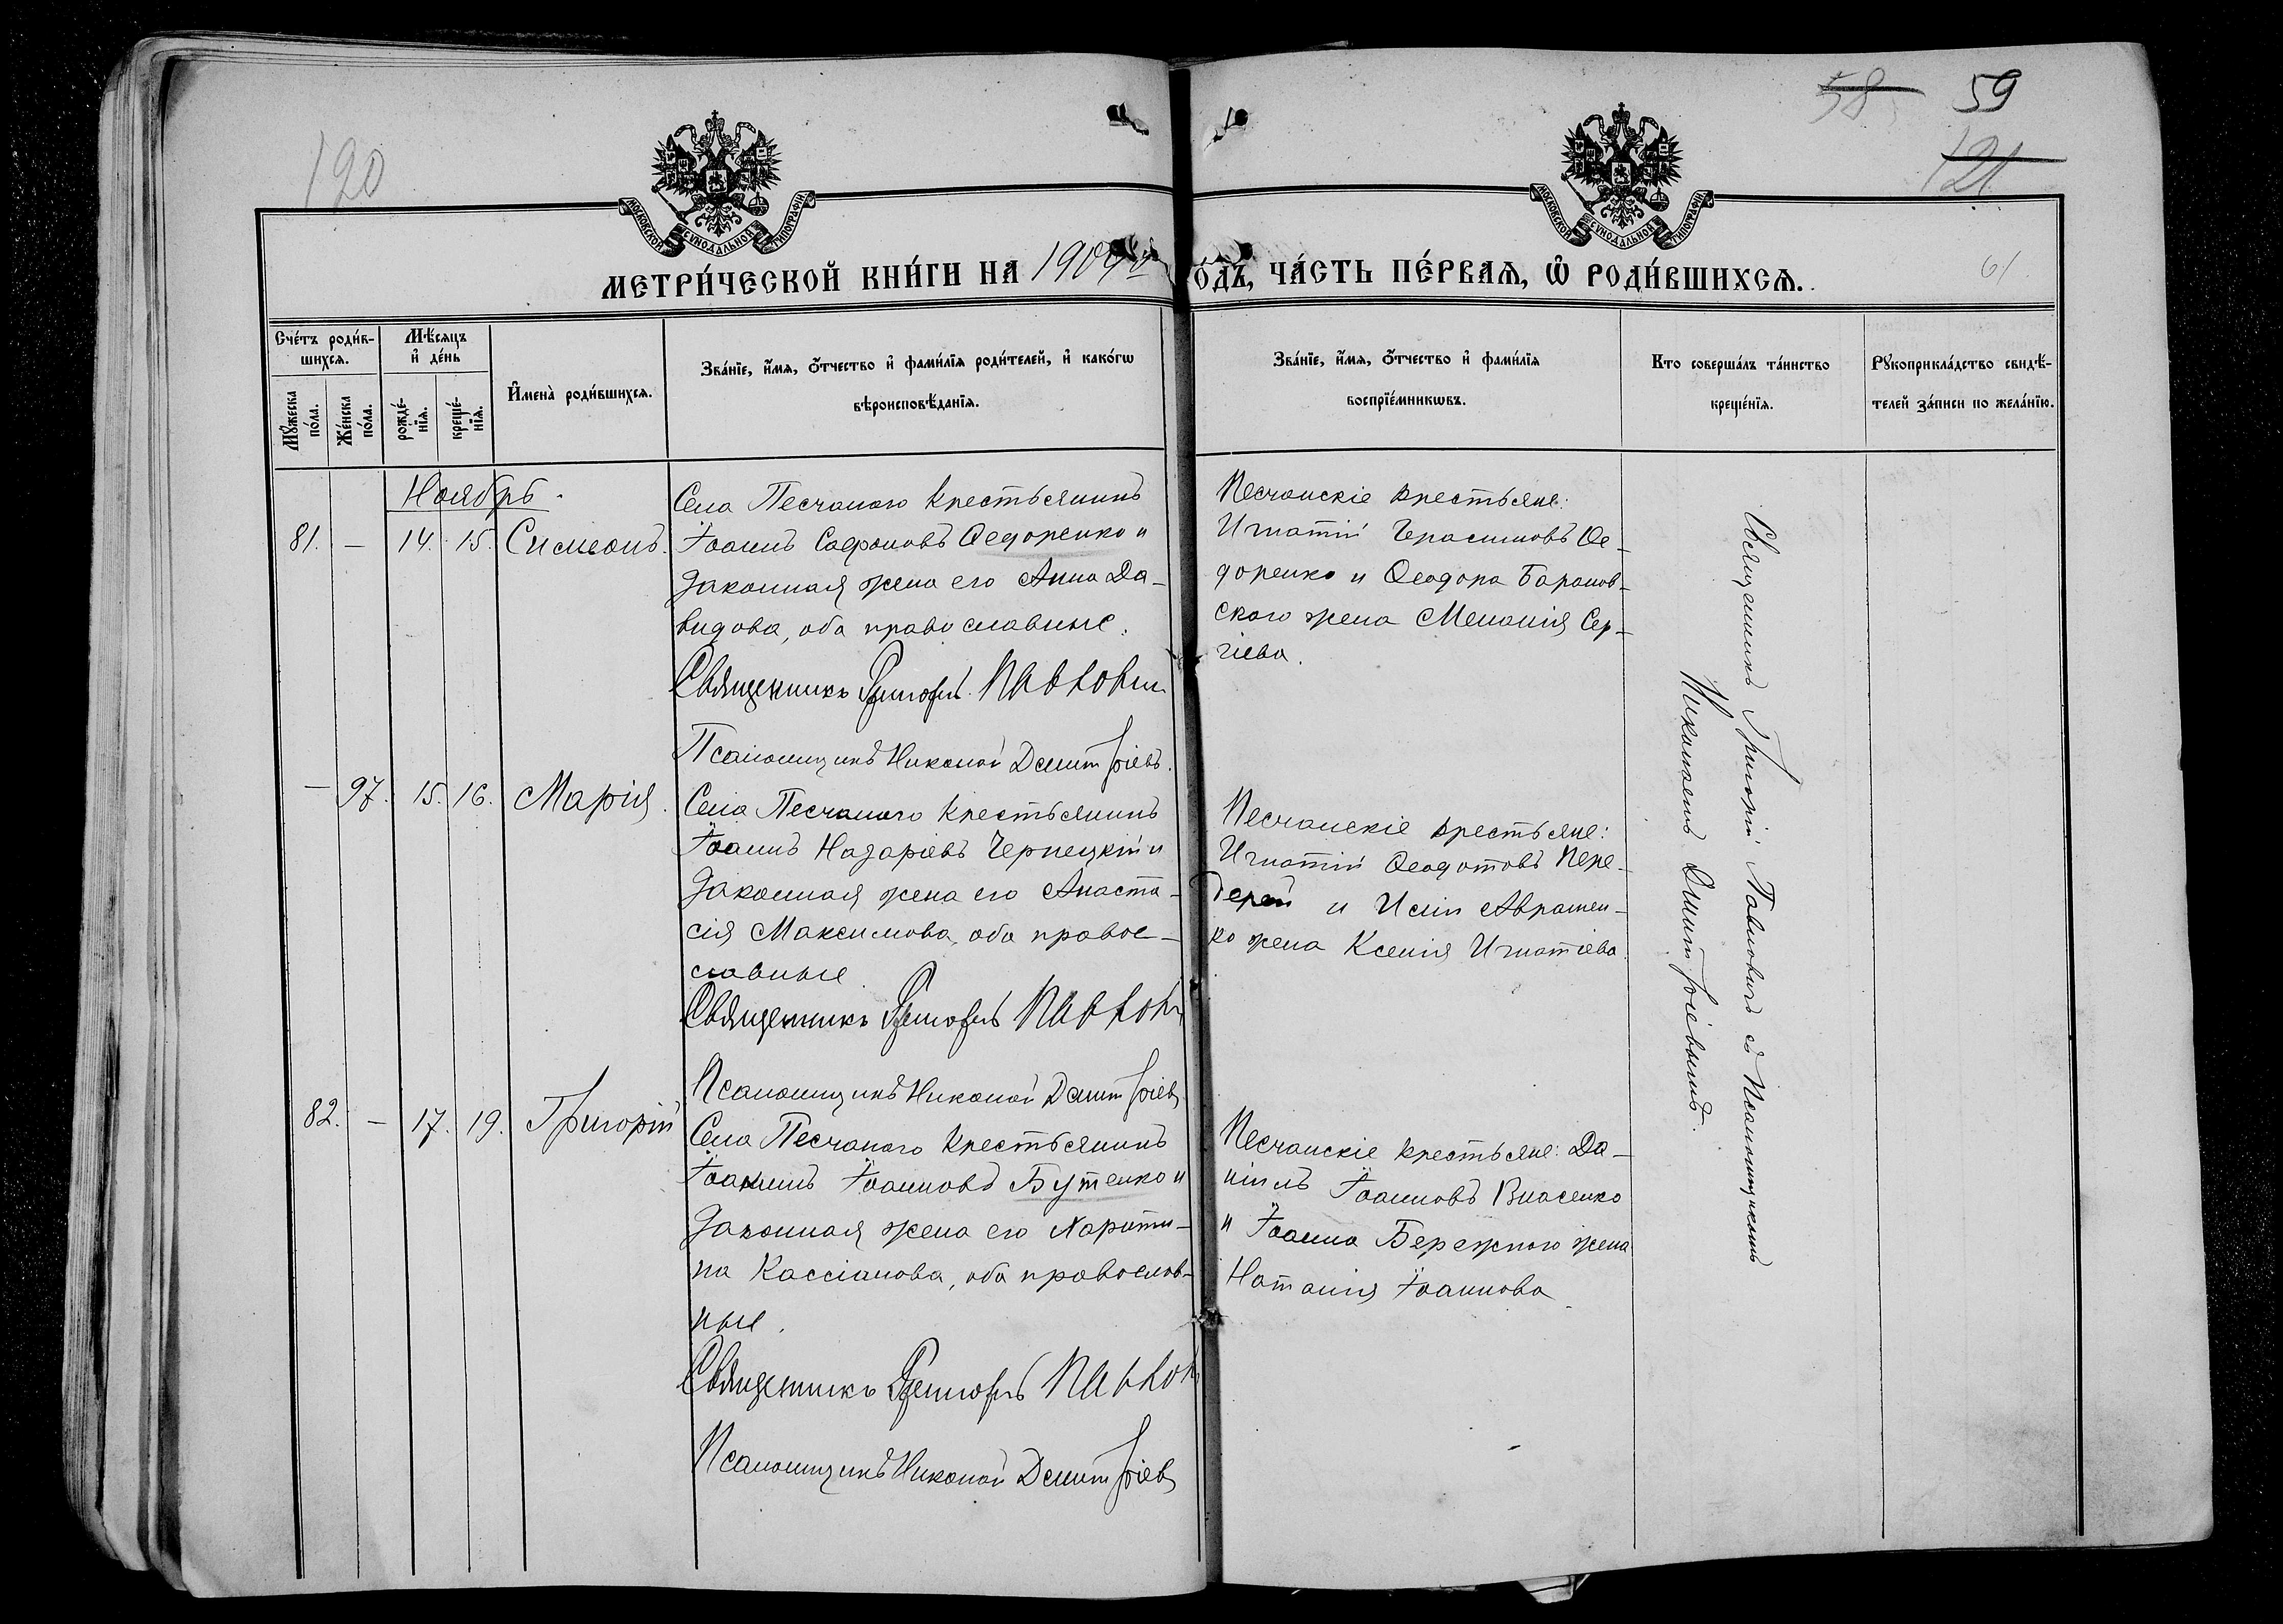 120
58 59
121
МОСКОВСКОЙ СУНОДАЛЬНОЙ ТИПОГРАФІИ
МОСКОВСКОЙ СУНОДАЛЬНОЙ ТИПОГРАФІИ
МЕТРИ́ЧЕСКОЙ КНИ́ГИ НА 1909 О́ДЪ, ЧА́СТЬ ПЕ́РВАЯ, Ѡ҆ РОДИ́ВШИХСЯ.
61
Счéтъ роди́в-
шихся.
Му́жеска по́ла.
Же́нска по́ла.
Мѣ́сяцъ
и҆ де́нь
рожде́-
нїя.
креще́-
нїя.
И҆мена̀ роди́вшихся.
Зва́нїе, и҆́мя, ѻ҆́тчество и҆ фами́лїя роди́телей, и҆ како́гѡ
вѣроисповѣ́данїя.
Зва́нїе, и҆́мя, ѻ҆́тчество и҆ фами́лїя
воспрїе́мникѡвъ.
Кто соверша́лъ та́инство
креще́нїя.
Рꙋкоприкла́дство свидѣ́-
телей за́писи по жела́нїю.
Ноябрь.
81. — 14. 15. Симеонъ.
Села Песчаного крестьянинъ
Іоаннъ Сафоновъ Ѳедоренко и
законная жена его Анна Да-
видова, оба православные.
Священникъ Григорій Павлович
Псаломщикъ Николай Димитріевъ.
Песчанскіе крестьяне:
Игнатій Герасимовъ Ѳе-
доренко и Ѳеодора Баранов-
ского жена Меланія Сер-
гіева.
— 97. 15. 16. Марія.
Села Песчаного крестьянинъ
Іоаннъ Назаріевъ Чернецкій и
законная жена его Анаста-
сія Максимова, оба право-
славные.
Священникъ Григорій Павлов
Псаломщикъ Николай Димитріев
Песчанскіе крестьяне:
Игнатій Ѳеодотовъ Пере-
дерей и Исіи Авраmен-
ко жена Ксенія Игнатіева.
82. — 17. 19. Григорій
Села Песчаного крестьянинъ
Іоакимъ Іоанновъ Бутенко и
законная жена его Харити-
на Кассіанова, оба православ-
ные.
Священникъ Григорій Павлов
Псаломщикъ Николай Димитріев
Песчанскіе крестьяне: Да-
ніилъ Іоанновъ Власенко
и Іоанна Бережного жена
Наталія Іоаннова.
Священникъ Григорій Павловичъ съ Псаломщикомъ
Николаемъ Димитріевымъ.